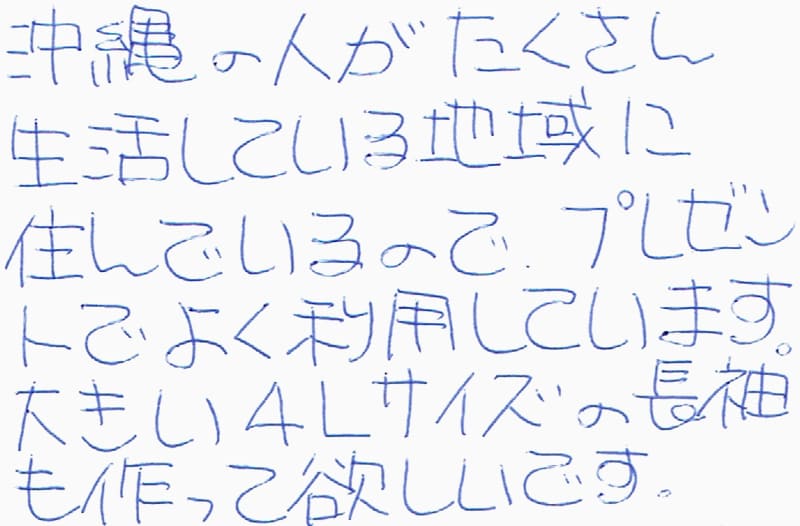 沖縄の人がたくさん
生活している地域に
住んでいるので、プレゼン
トでよく利用しています。
大きい4Lサイズの長袖
も作って欲しいです。